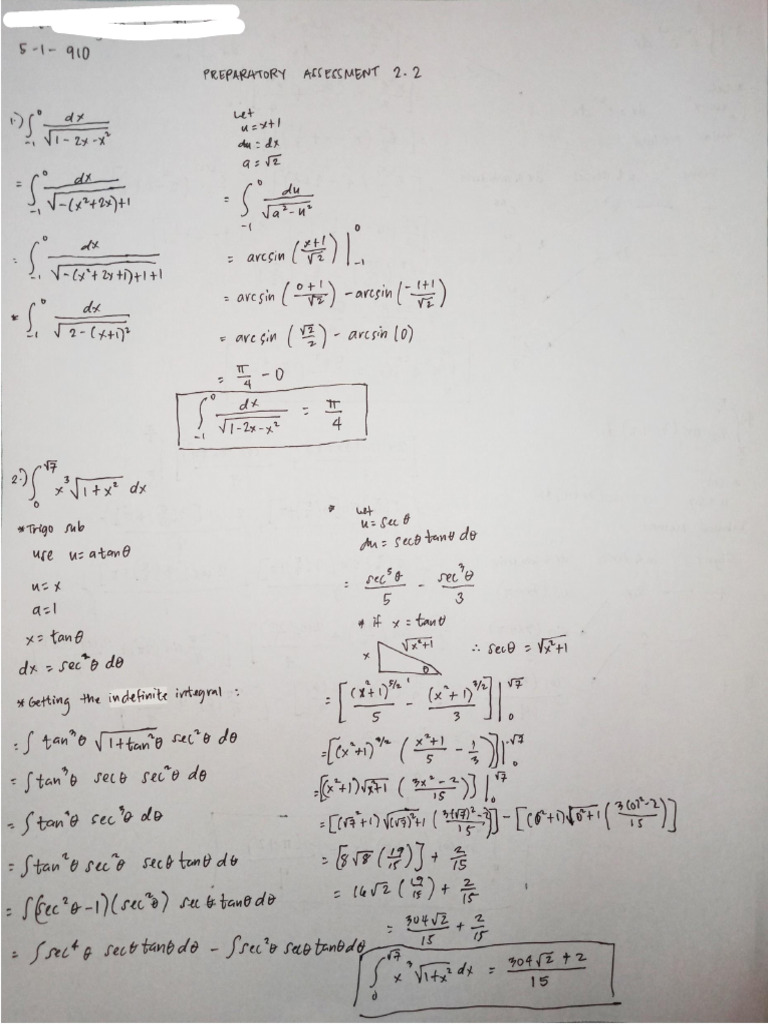 5-1-910
PREPARATORY ASSESSMENT 2.2
1.) ∫_{-1}^{0} dx / √(1-2x-x²)
= ∫_{-1}^{0} dx / √(-(x²+2x)+1)
= ∫_{-1}^{0} dx / √(-(x²+2x+1)+1+1)
* ∫_{-1}^{0} dx / √(2-(x+1)²)
Let
u = x+1
du = dx
a = √2
= ∫_{-1}^{0} du / √(a²-u²)
= arcsin ((x+1)/√2) |_{-1}^{0}
= arcsin ((0+1)/√2) - arcsin ((-1+1)/√2)
= arcsin (√2/2) - arcsin (0)
= π/4 - 0
∫_{-1}^{0} dx / √(1-2x-x²) = π/4
2.) ∫_{0}^{√7} x³ √(1+x²) dx
* Trigo sub
use u = a tan θ
u = x
a = 1
x = tan θ
dx = sec² θ dθ
* Getting the indefinite integral :
= ∫ tan³ θ √(1+tan² θ) sec² θ dθ
= ∫ tan³ θ sec θ sec² θ dθ
= ∫ tan³ θ sec³ θ dθ
= ∫ tan² θ sec² θ sec θ tan θ dθ
= ∫ (sec² θ -1)(sec² θ) sec θ tan θ dθ
= ∫ sec⁴ θ sec θ tan θ dθ - ∫ sec² θ sec θ tan θ dθ
* Let
u = sec θ
du = sec θ tan θ dθ
= sec⁵ θ / 5 - sec³ θ / 3
* if x = tan θ
x √(x²+1) θ 1 ∴ sec θ = √(x²+1)
= [ (x²+1)^{5/2} / 5 - (x²+1)^{3/2} / 3 ] |_{0}^{√7}
= [ (x²+1)^{3/2} ( (x²+1)/5 - 1/3 ) ] |_{0}^{√7}
= [ (x²+1) √(x²+1) ( (3x²-2)/15 ) ] |_{0}^{√7}
= [ (√7²+1) √((√7)²+1) ( (3(√7)²-2)/15 ) ] - [ (0²+1) √(0²+1) ( (3(0)²-2)/15 ) ]
= [ 8√8 (19/15) ] + 2/15
= 16√2 (19/15) + 2/15
= 304√2/15 + 2/15
∫_{0}^{√7} x³ √(1+x²) dx = (304√2 + 2)/15